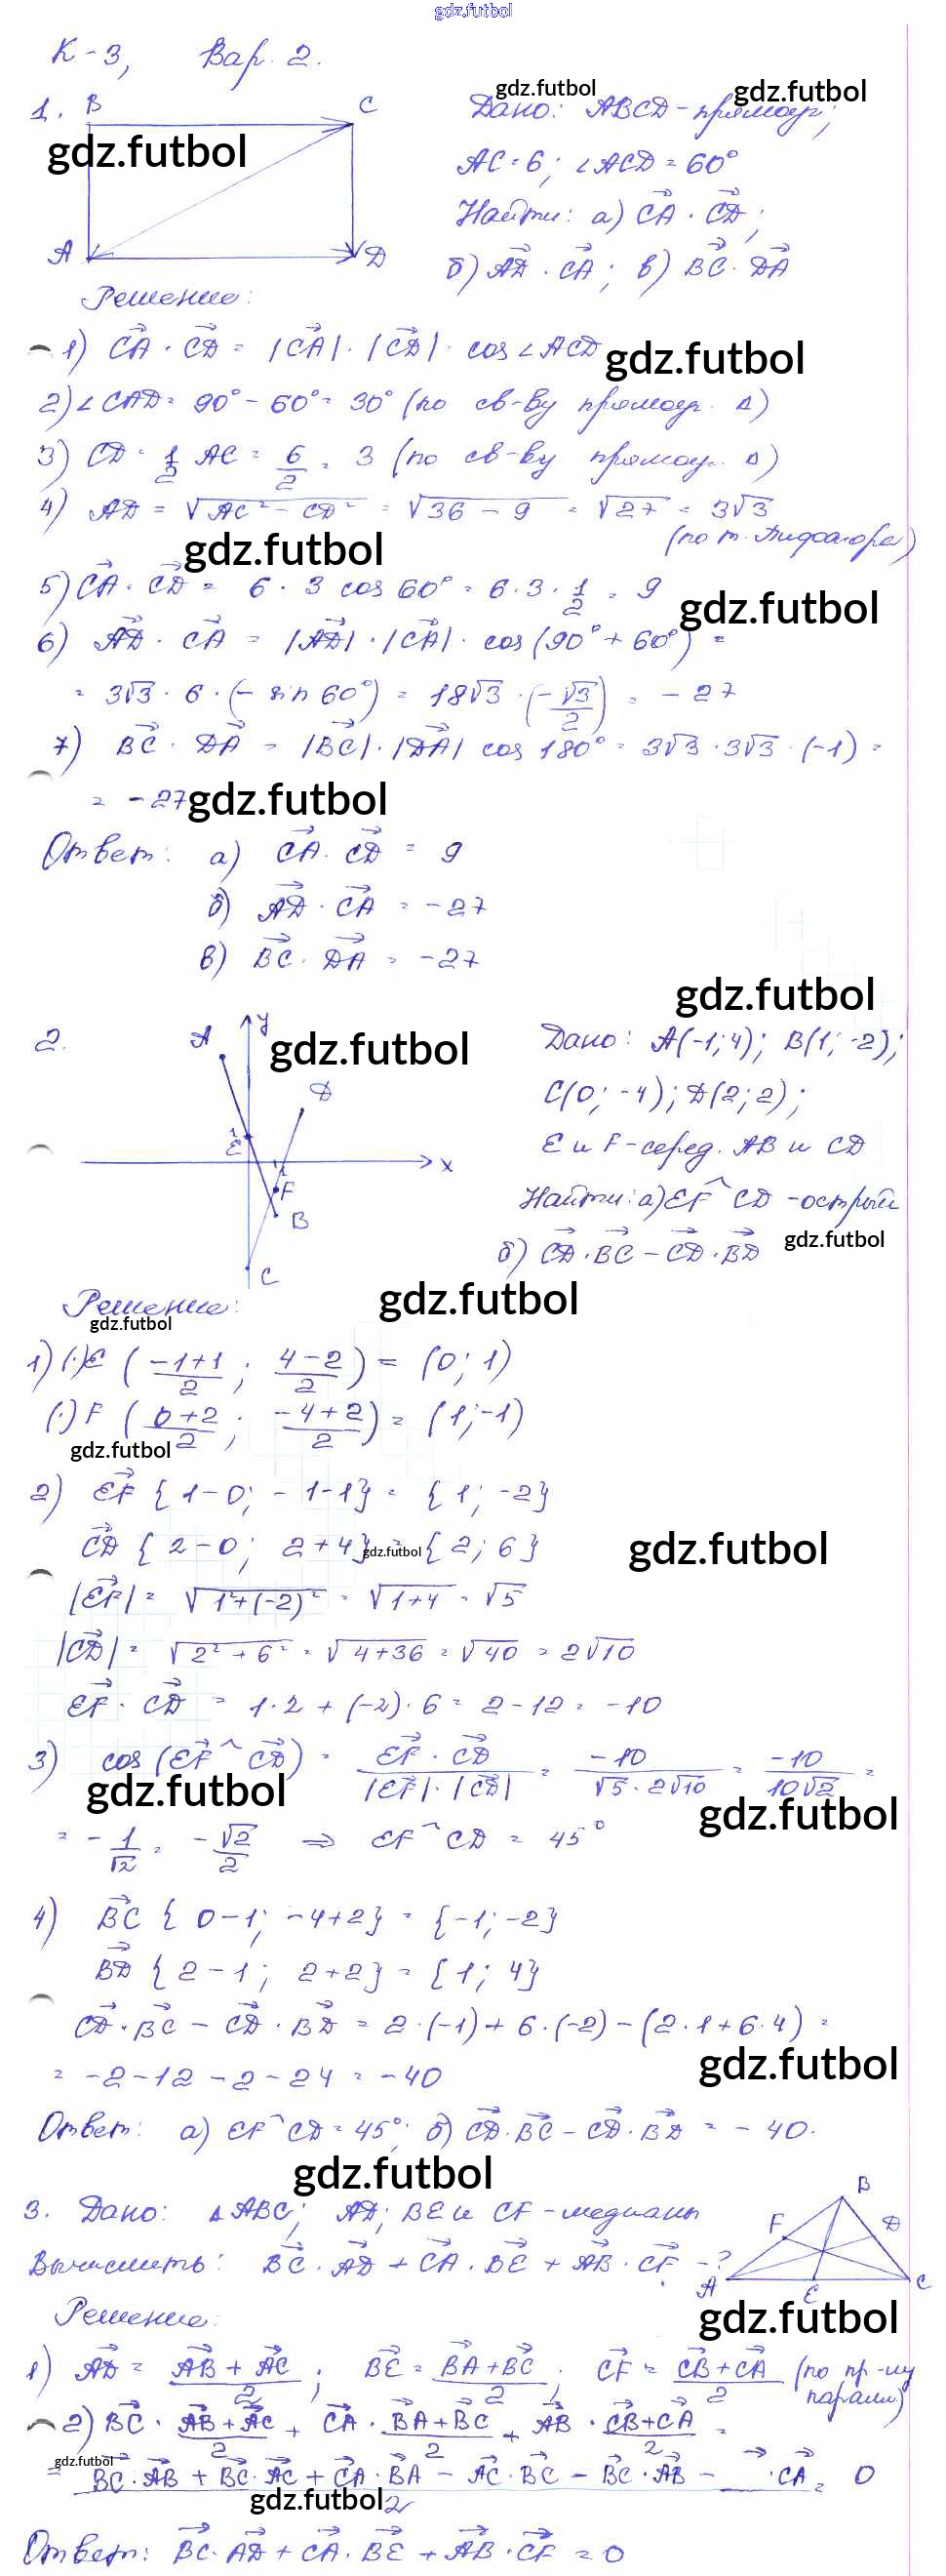 gdz.futbol
К-3, Вар. 2.
1. B C
A D
gdz.futbol
gdz.futbol
gdz.futbol
Дано: ABCD - прямоуг;
AC = 6; ∠ACD = 60°
Найти: а) CA · CD;
б) AD · CA; в) BC · DA
Решение:
1) CA · CD = |CA| · |CD| · cos ∠ACD gdz.futbol
2) ∠CAD = 90° - 60° = 30° (по св-ву прямоуг. Δ)
3) CD = 1/2 AC = 6/2 = 3 (по св-ву прямоуг. Δ)
4) AD = √(AC² - CD²) = √(36 - 9) = √27 = 3√3
(по т. Пифагора)
gdz.futbol
5) CA · CD = 6 · 3 cos 60° = 6 · 3 · 1/2 = 9
gdz.futbol
6) AD · CA = |AD| · |CA| · cos (90° + 60°) =
= 3√3 · 6 · (- sin 60°) = 18√3 · (-√3/2) = - 27
7) BC · DA = |BC| · |DA| cos 180° = 3√3 · 3√3 · (-1) =
= -27 gdz.futbol
Ответ: а) CA · CD = 9
б) AD · CA = -27
в) BC · DA = -27
gdz.futbol
2. A y D E 1 x 1 F B C
gdz.futbol
Дано: A(-1; 4); B(1; -2);
C(0; -4); D(2; 2);
E и F - серед. AB и CD
Найти: а) EF^CD - острый
б) CD · BC - CD · BD gdz.futbol
gdz.futbol
Решение:
gdz.futbol
1) (·) E ((-1+1)/2; (4-2)/2) = (0; 1)
(·) F ((0+2)/2; (-4+2)/2) = (1; -1)
gdz.futbol
2) EF {1-0; -1-1} = {1; -2}
CD {2-0; 2+4} = {2; 6}
gdz.futbol
gdz.futbol
|EF| = √(1²+(-2)²) = √(1+4) = √5
|CD| = √(2²+6²) = √(4+36) = √40 = 2√10
EF · CD = 1·2 + (-2)·6 = 2-12 = -10
3) cos (EF^CD) = (EF · CD)/(|EF| · |CD|) = -10/(√5 · 2√10) = -10/(10√2) =
gdz.futbol
gdz.futbol
= -1/√2 = -√2/2 ⇒ EF^CD = 45°
4) BC {0-1; -4+2} = {-1; -2}
BD {2-1; 2+2} = {1; 4}
CD · BC - CD · BD = 2·(-1) + 6·(-2) - (2·1 + 6·4) =
= -2-12-2-24 = -40
gdz.futbol
Ответ: а) EF^CD = 45°; б) CD · BC - CD · BD = -40.
gdz.futbol
3. Дано: Δ ABC; AD; BE и CF - медианы
Вычислить: BC · AD + CA · BE + AB · CF - ?
B F D A E C
gdz.futbol
Решение:
1) AD = (AB + AC)/2; BE = (BA + BC)/2; CF = (CB + CA)/2 (по пр-лу
парал.)
2) BC · (AB + AC)/2 + CA · (BA + BC)/2 + AB · (CB + CA)/2 =
gdz.futbol
= (BC · AB + BC · AC + CA · BA - AC · BC - BC · AB - · CA)/2 = 0
gdz.futbol
Ответ: BC · AD + CA · BE + AB · CF = 0